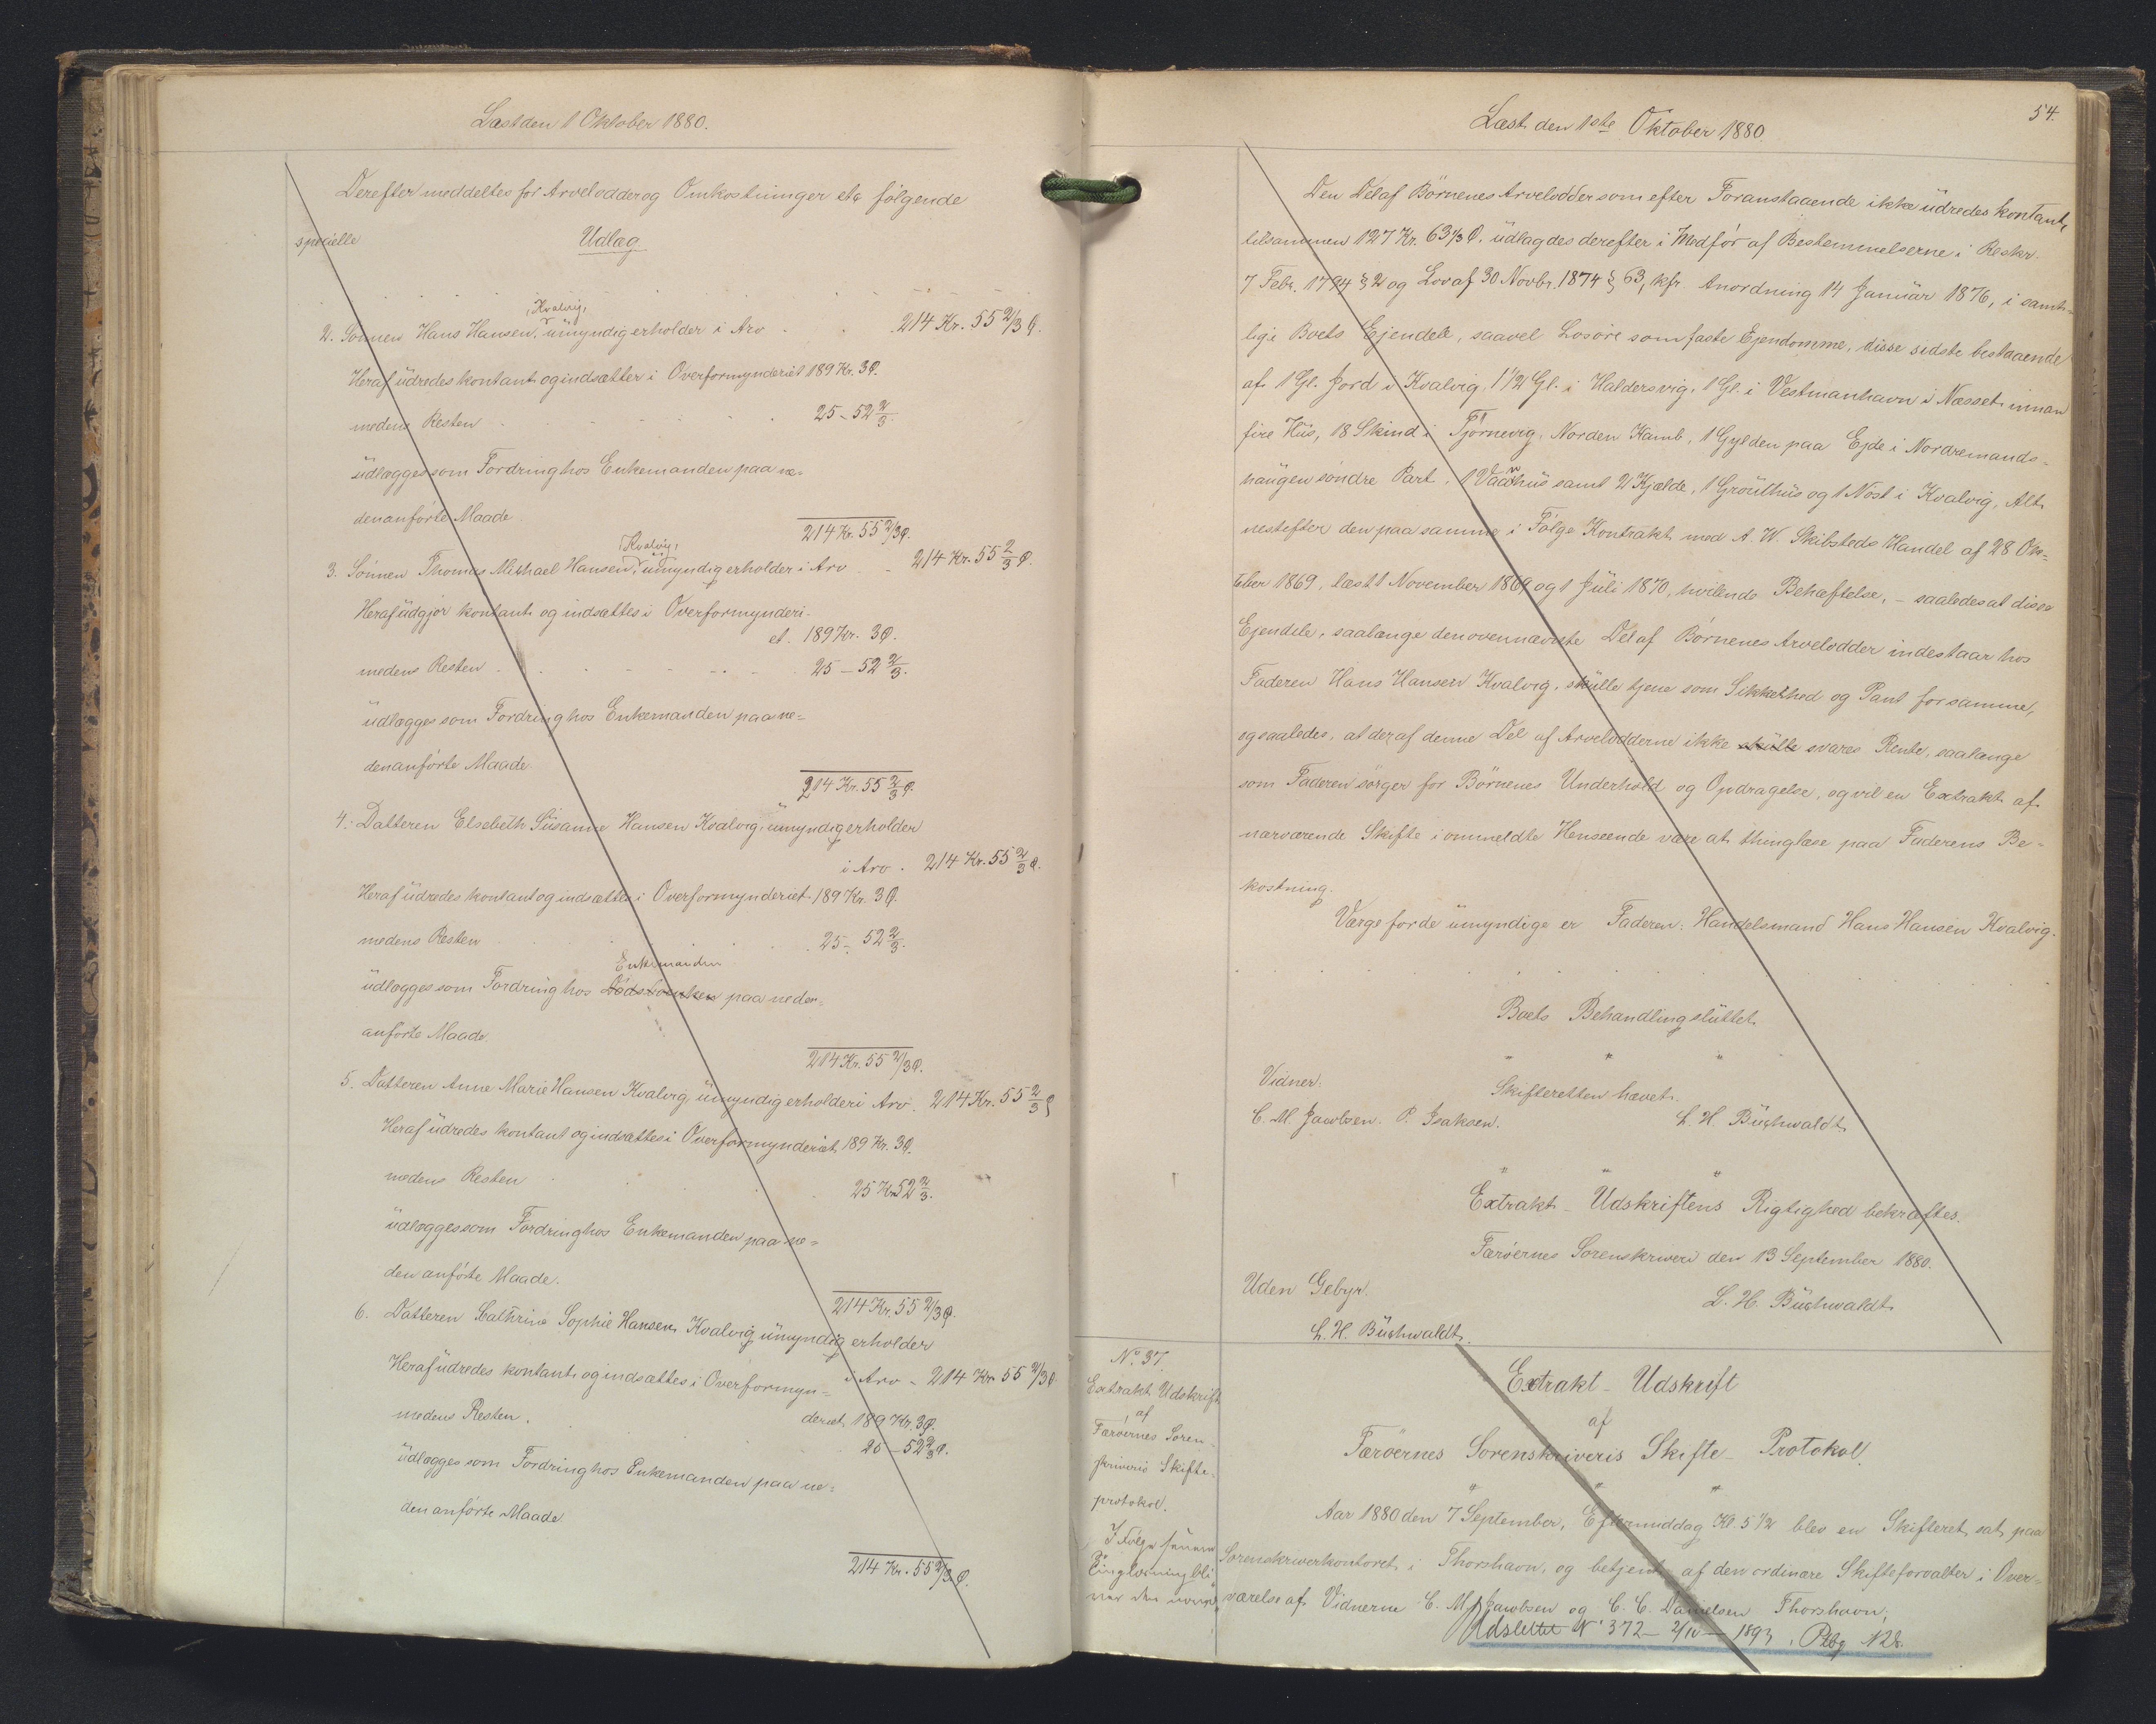 Læst den 1 Oktober 1880.
Derefter meddeltes for Arvelodder og Omkostninger etc følgende
specielle Udlæg
2. Sønnen Hans Hansen, Kvalvig, ümyndig erholder i Arv 214 Kr. 55 2/3 Ø.
Heraf üdredes kontant og indsætter i Overformynderiet 189 Kr. 3 Ø.
medens Resten 25 - 52 2/3.
üdlægges som Fordring hos Enkemanden paa ne=
denanførte Maade
214 Kr. 55 2/3 Ø.
3. Sønnen Thomas Michael Hansen, Kvalvig, ümyndig erholder i Arv 214 Kr. 55 2/3 Ø.
Heraf üdgjør kontant og indsættes i Overformynderi-
et. 189 Kr. 3 Ø.
medens Resten 25 - 52 2/3.
üdlægges som Fordring hos Enkemanden paa ne=
denanførte Maade
214 Kr. 55 2/3 Ø.
4. Datteren Elsebeth Süsanne Hansen Kvalvig, ümyndig erholder
i Arv. 214 Kr. 55 2/3 Ø.
Heraf üdredes kontant og indsættes i Overformynderiet 189 Kr. 3 Ø.
medens Resten 25 - 52 2/3.
Enkemanden
üdlægges som Fordring hos paa neden=
anførte Maade.
214 Kr. 55 2/3 Ø.
5. Datteren Anne Marie Hansen Kvalvig, ümyndig erholder i Arv. 214 Kr. 55 2/3 Ø
Heraf üdredes kontant og indsættes i Overformynderiet 189 Kr. 3 Ø.
medens Resten 25 Kr. 52 2/3.
üdlægges som Fordring hos Enkemanden paa ne=
den anførte Maade.
214 Kr. 55 2/3 Ø.
6. Datteren Cathrine Sophie Hansen, Kvalvig ümyndig erholder
i Arv - 214 Kr 55 2/3 Ø
Heraf üdredes kontant og indsættes i Overformyn=
deriet 189 Kr. 3 Ø.
medens Resten. 25 - 52 2/3 Ø.
üdlægges som Fordring hos Enkemanden paa ne=
den anførte Maade.
214 Kr. 55 2/3 Ø.
Læst den 1ste Oktober 1880
54.
Den Del af Børnenes Arvelodder som efter Foranstaaende ikke üdredes kontant,
tilsammen 127 Kr. 63 1/3 Ø. üdlagdes derefter i Medfør af Bestemmelserne i Reskr.
7 Febr. 1794 § 2 og Lov af 30 Novbr. 1874 § 63, kfr. Anordning 14 Januar 1876, i samt=
lige Boets Ejendele, saavel Løsøre som faste Ejendomme, disse sidste bestaaende
af 1 Gl. Jord i Kvalvig, 1 1/2 Gl. i Haldersvig, 1 Gl. i Vestmanhavn i Næsset innan
fire Hüs, 18 Skind i Tjørnevig, Norden Kamb, 1 Gylden paa Ejde i Nordremands=
haugen søndre Part, 1 Vaanhüs samt 2 Kjælde, 1 Grouthüs og 1 Nøst i Kvalvig, Alt
næstefter den paa samme i Følge Kontrakt med A. W. Skibsteds Handel af 28 Ok=
tober 1869, læst 1 November 1869 og 1 Jüli 1870, hvilende Behæftelse, - saaledes at disse
Ejendele, saalænge denovennævnte Del af Børnenes Arvelodder indestaar hos
Faderen Hans Hansen Kvalvig, skulle tjene som Sikkerhed og Pant for samme,
og saaledes, at der af denne Del af Arvelodderne ikke skulle svares Rente, saalænge
som Faderen sørger for Børnenes Underhold og Opdragelse, og vil en Extrakt af
nærværende Skifte i ommeldte Henseende være at thinglæse paa Faderens Be=
kostning.
Værge for de ümyndige er Faderen, Handelsmand Hans Hansen Kvalvig.
Boets Behandling slüttet.
" " "
Vidner: Skifteretten hævet.
C. M. Jacobsen. P. Isaksen. L. H. Büchwaldt
" " "
Extrakt - Udskriftens Rigtighed bekræftes.
Færøernes Sorenskriveri den 13 September 1880.
L. H. Büchwaldt
Uden Gebyr.
L. H. Büchwaldt.
No. 37
Extrakt Udskrift
af
Færøernes Soren-
skriveris Skifte-
protokol.
I Følge senere
Tinglæsning bli
ver den
Extrakt - Udskrift
af
Færøernes Sorenskriveris Skifte - Protokol.
" " "
Aar 1880 den 7 September, Eftermiddag Kl. 5 1/2 blev en Skifteret sat paa
Sorenskriverkontoret i Thorshavn, og betjent af den ordinære Skifteforvalter i Over=
værelse af Vidnerne C. M. Jacobsen og C. C. Danielsen Thorshavn;
Udslettet No 372 - 2/10 - 1893.